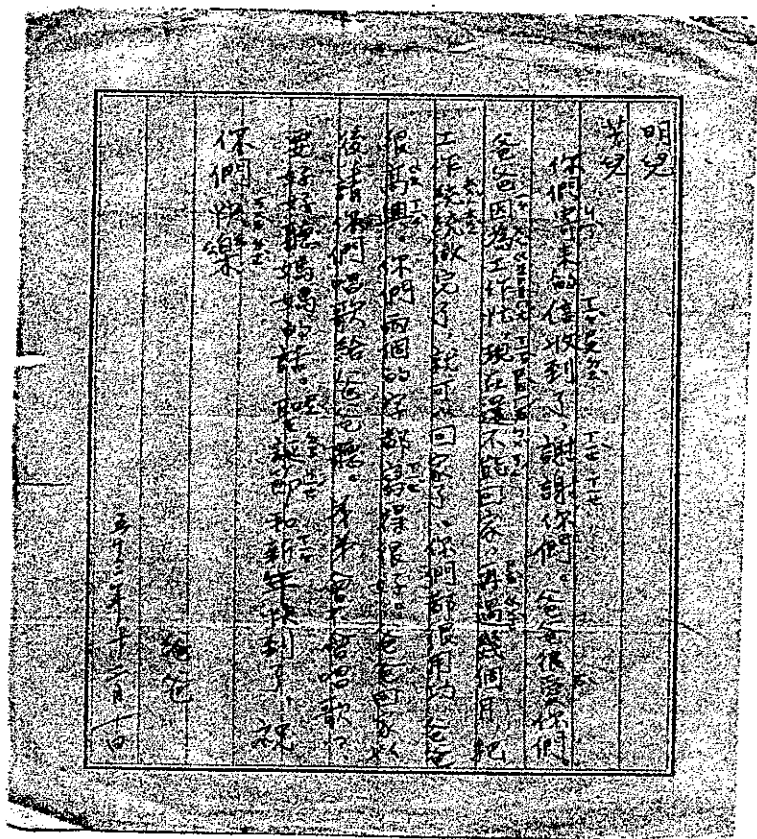 明兒.
芳兒.
你們寄來的信收到了,謝謝你們。爸爸很愛你們。
爸爸因為工作忙,現在還不能回家,再過幾個月把
工作陸續做完了,就可以回家了。你們都很用功,爸爸
很高興。你們兩個的字都寫得很好。爸爸回家以
後請你們唱歌給爸爸聽。弟弟會不會唱歌?
要好好聽媽媽的話。聖誕節和新年快到了,祝
你們快樂
爸爸
五十二年十二月十日